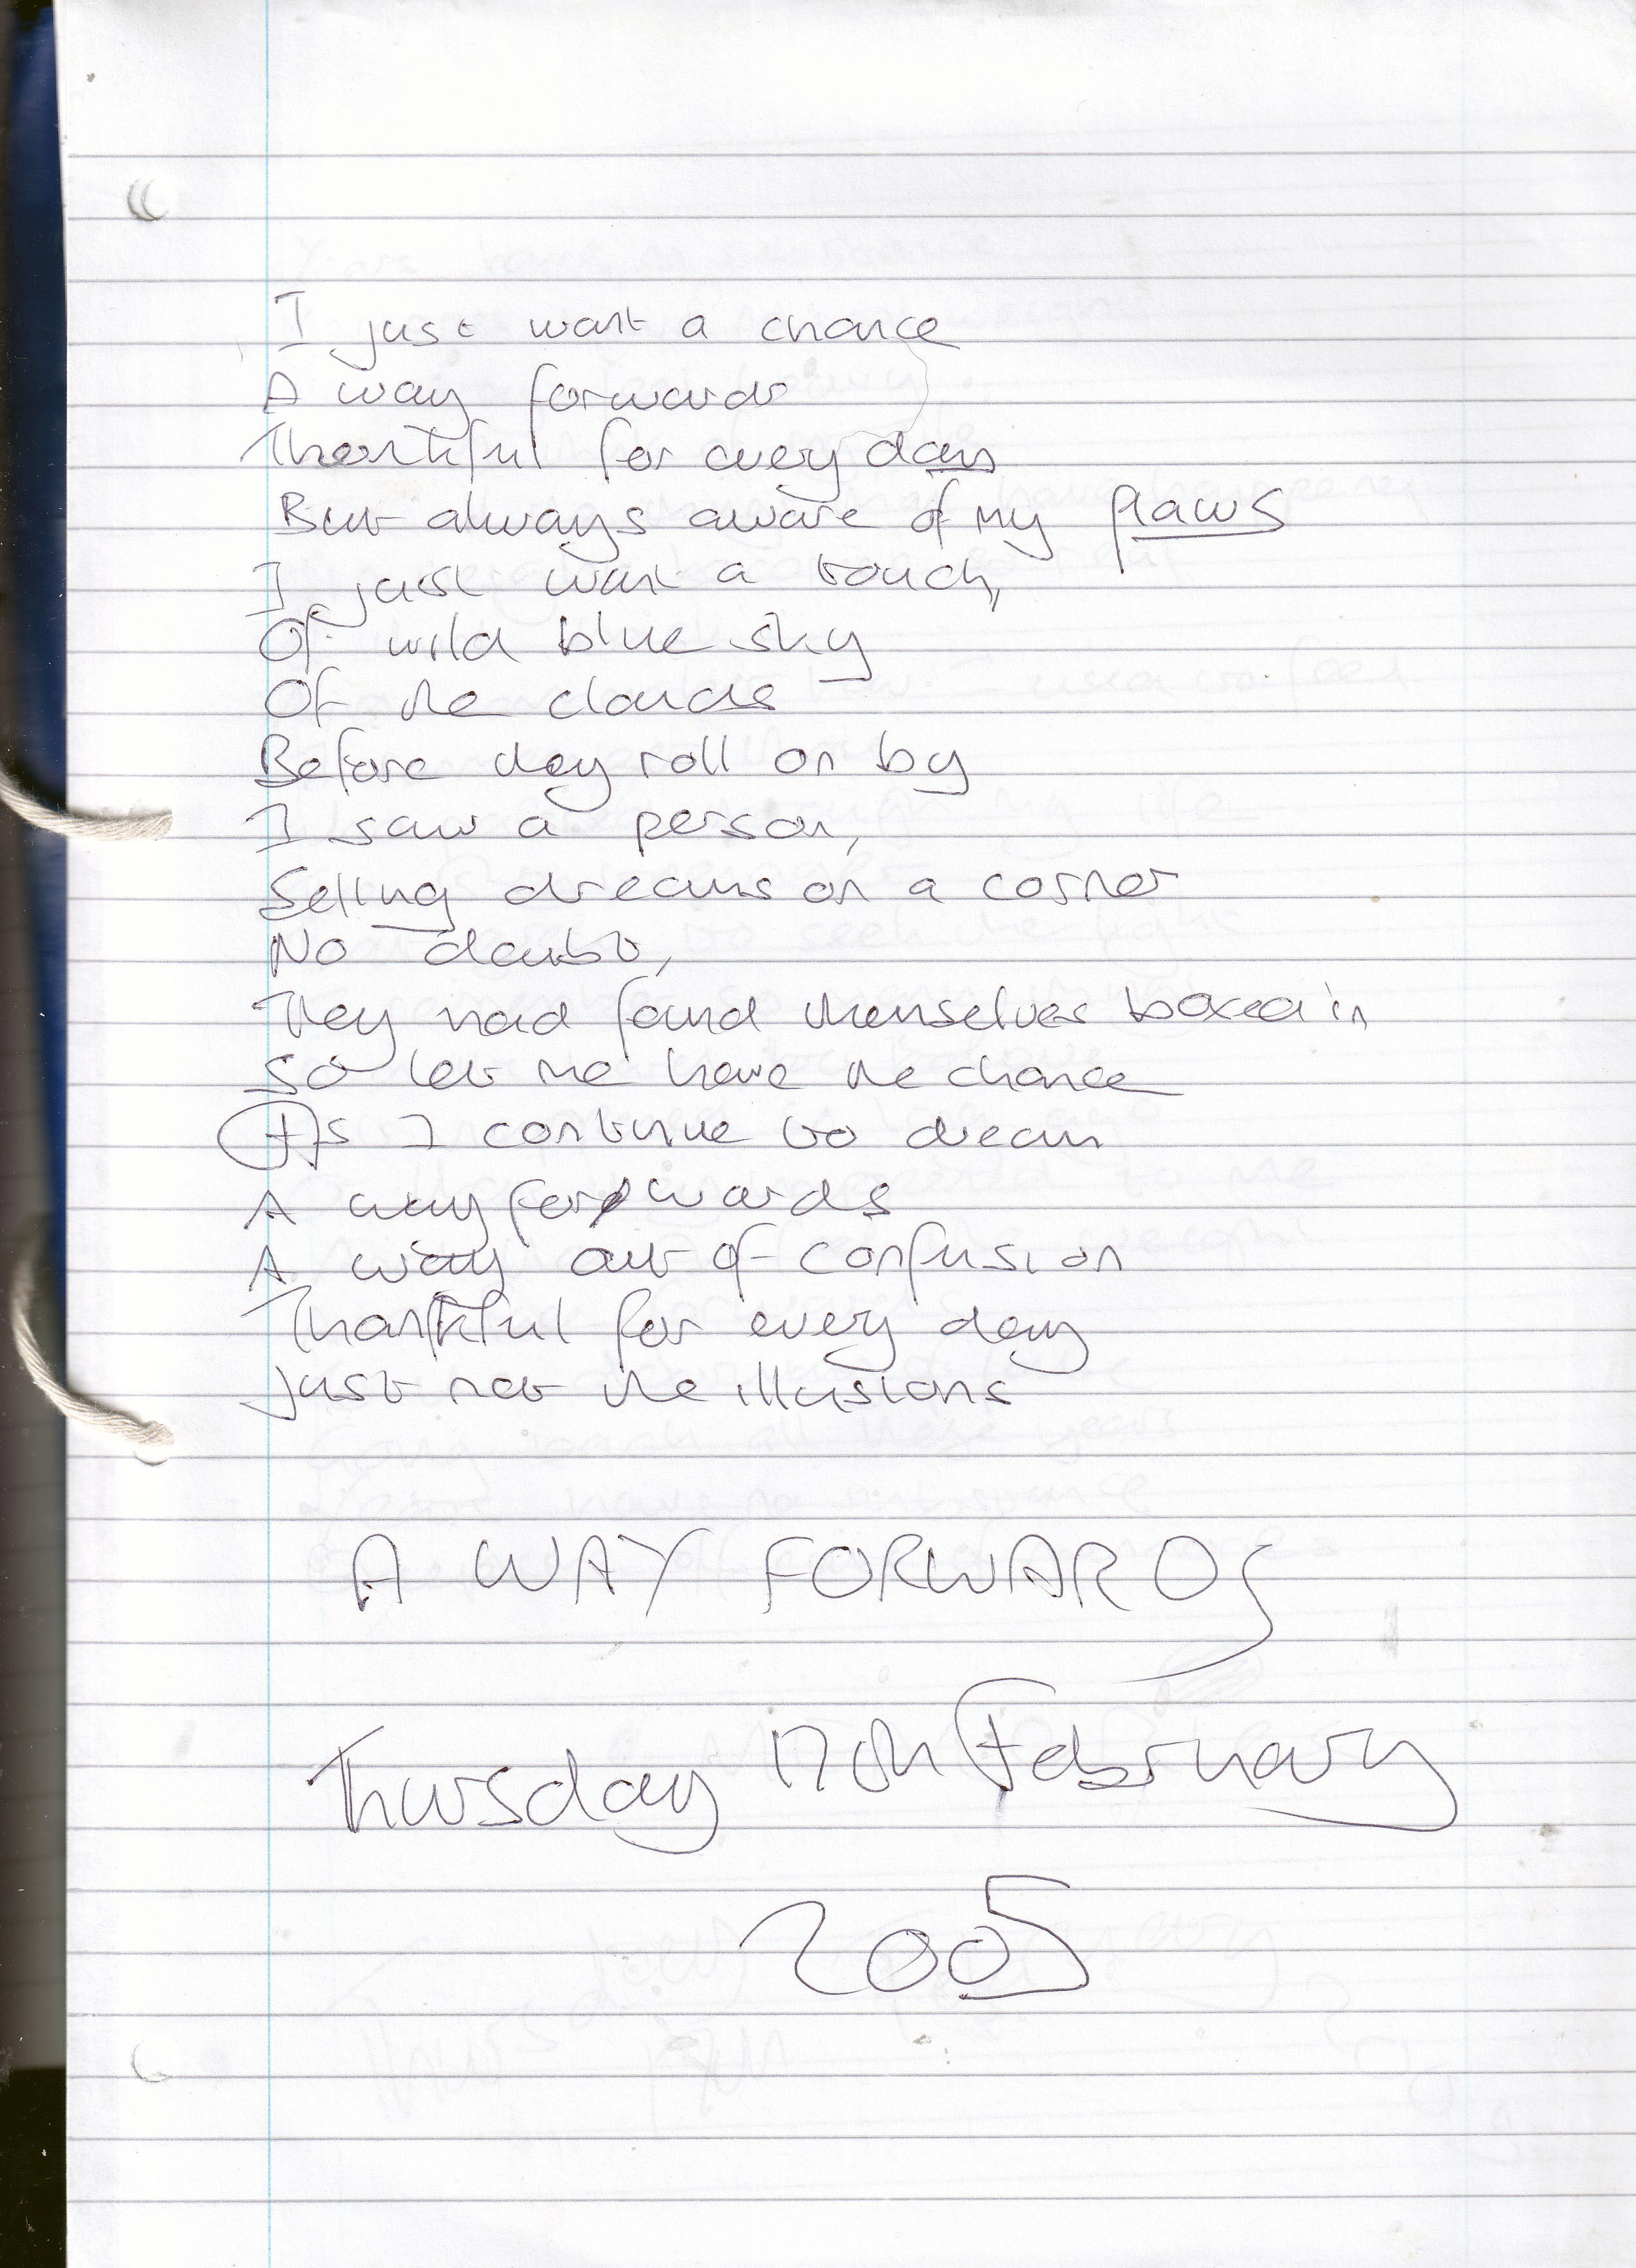 I just want a chance
A way forwards
Thankful for every day
But always aware of my flaws
I just want a touch,
Of wild blue sky
Of the clouds
Before they roll on by
I saw a person,
Selling dreams on a corner
No doubt,
They had found themselves boxed in
So let me have the chance
As I continue to dream
A way forwards
A way out of confusion
Thankful for every day
Just not the illusions
A WAY FORWARDS
Thursday 17th February
2005